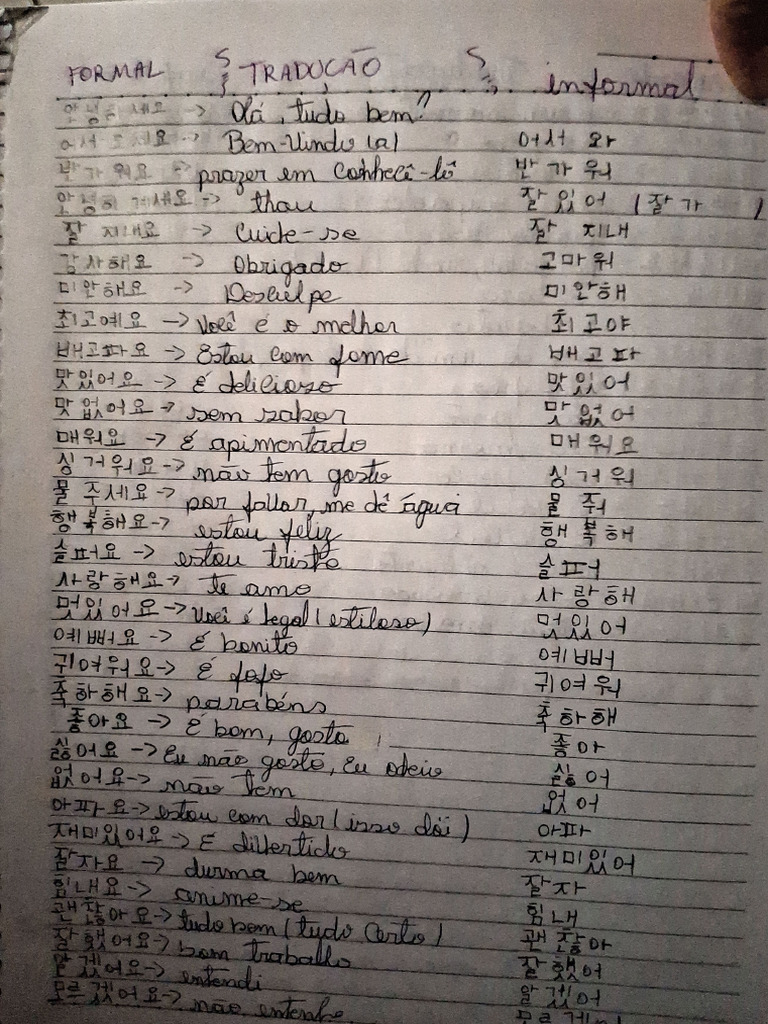 FORMAL TRADUÇÃO informal
안녕하세요 -> Olá, tudo bem?
어서 오세요 -> Bem-Vindo (a) 어서 와
반가워요 -> prazer em conhecê-lô 반가워
안녕히 계세요 -> thau 잘 있어 (잘 가 )
잘 지내요 -> Cuide-se 잘 지내
감사해요 -> Obrigado 고마워
미안해요 -> Desculpe 미안해
최고예요 -> Você é o melhor 최고야
배고파요 -> Estou com fome 배고파
맛있어요 -> É delicioso 맛있어
맛없어요 -> sem sabor 맛없어
매워요 -> É apimentado 매워요
싱거워요 -> não tem gosto 싱거워
물 주세요 -> por favor, me dê água 물 줘
행복해요 -> estou feliz 행복해
슬퍼요 -> estou triste 슬퍼
사랑해요 -> te amo 사랑해
멋있어요 -> Você é legal (estiloso) 멋있어
예뻐요 -> É bonito 예뻐
귀여워요 -> É fofo 귀여워
축하해요 -> parabéns 축하해
좋아요 -> É bom, gosto 좋아
싫어요 -> Eu não gosto, Eu odeio 싫어
없어요 -> não tem 없어
아파요 -> estou com dor (isso dói) 아파
재미있어요 -> É divertido 재미있어
잘자요 -> durma bem 잘자
힘내요 -> anime-se 힘내
괜찮아요 -> tudo bem (tudo certo) 괜찮아
잘했어요 -> bom trabalho 잘했어
알겠어요 -> entendi 알겠어
모르겠어요 -> não entendo